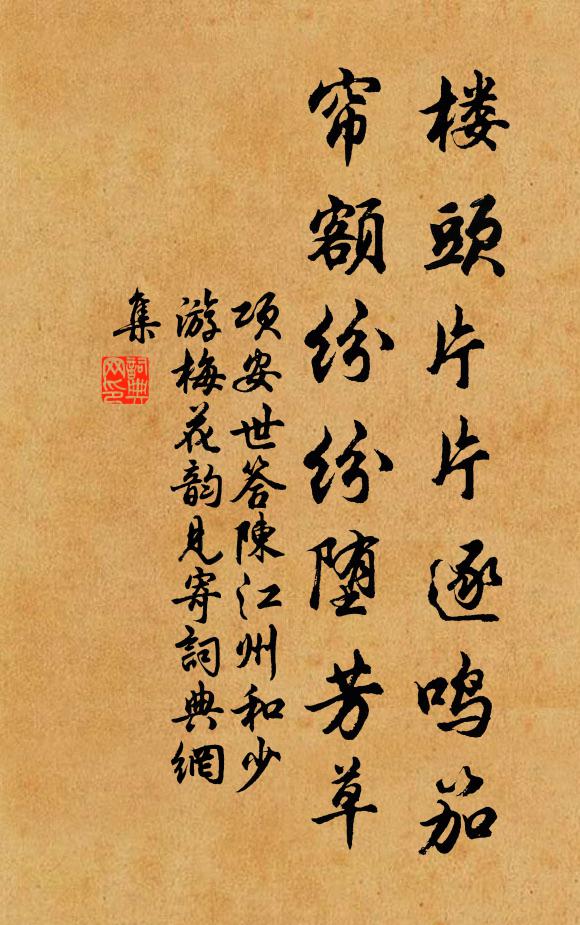 楼頭片片逐鸣笳
帘額纷纷堕芳草
项安世答陳江州和少
游梅花韵見寄詞典網
集
詞典
网印